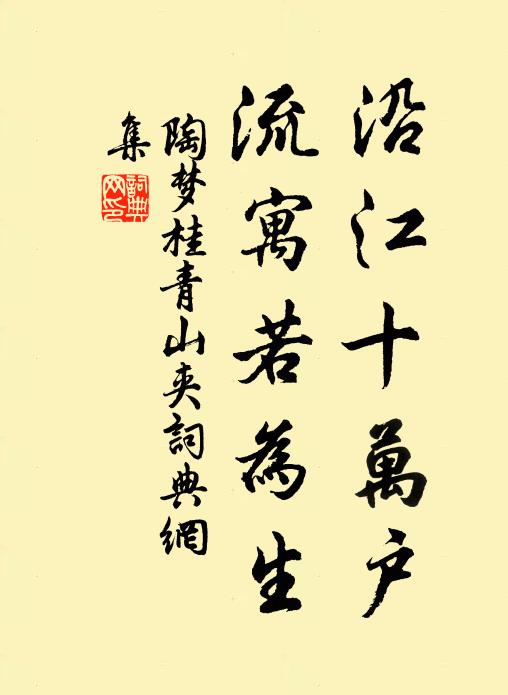 沿江十萬户
流寓若為生
陶梦桂青山夾詞典網
集
詞典网印